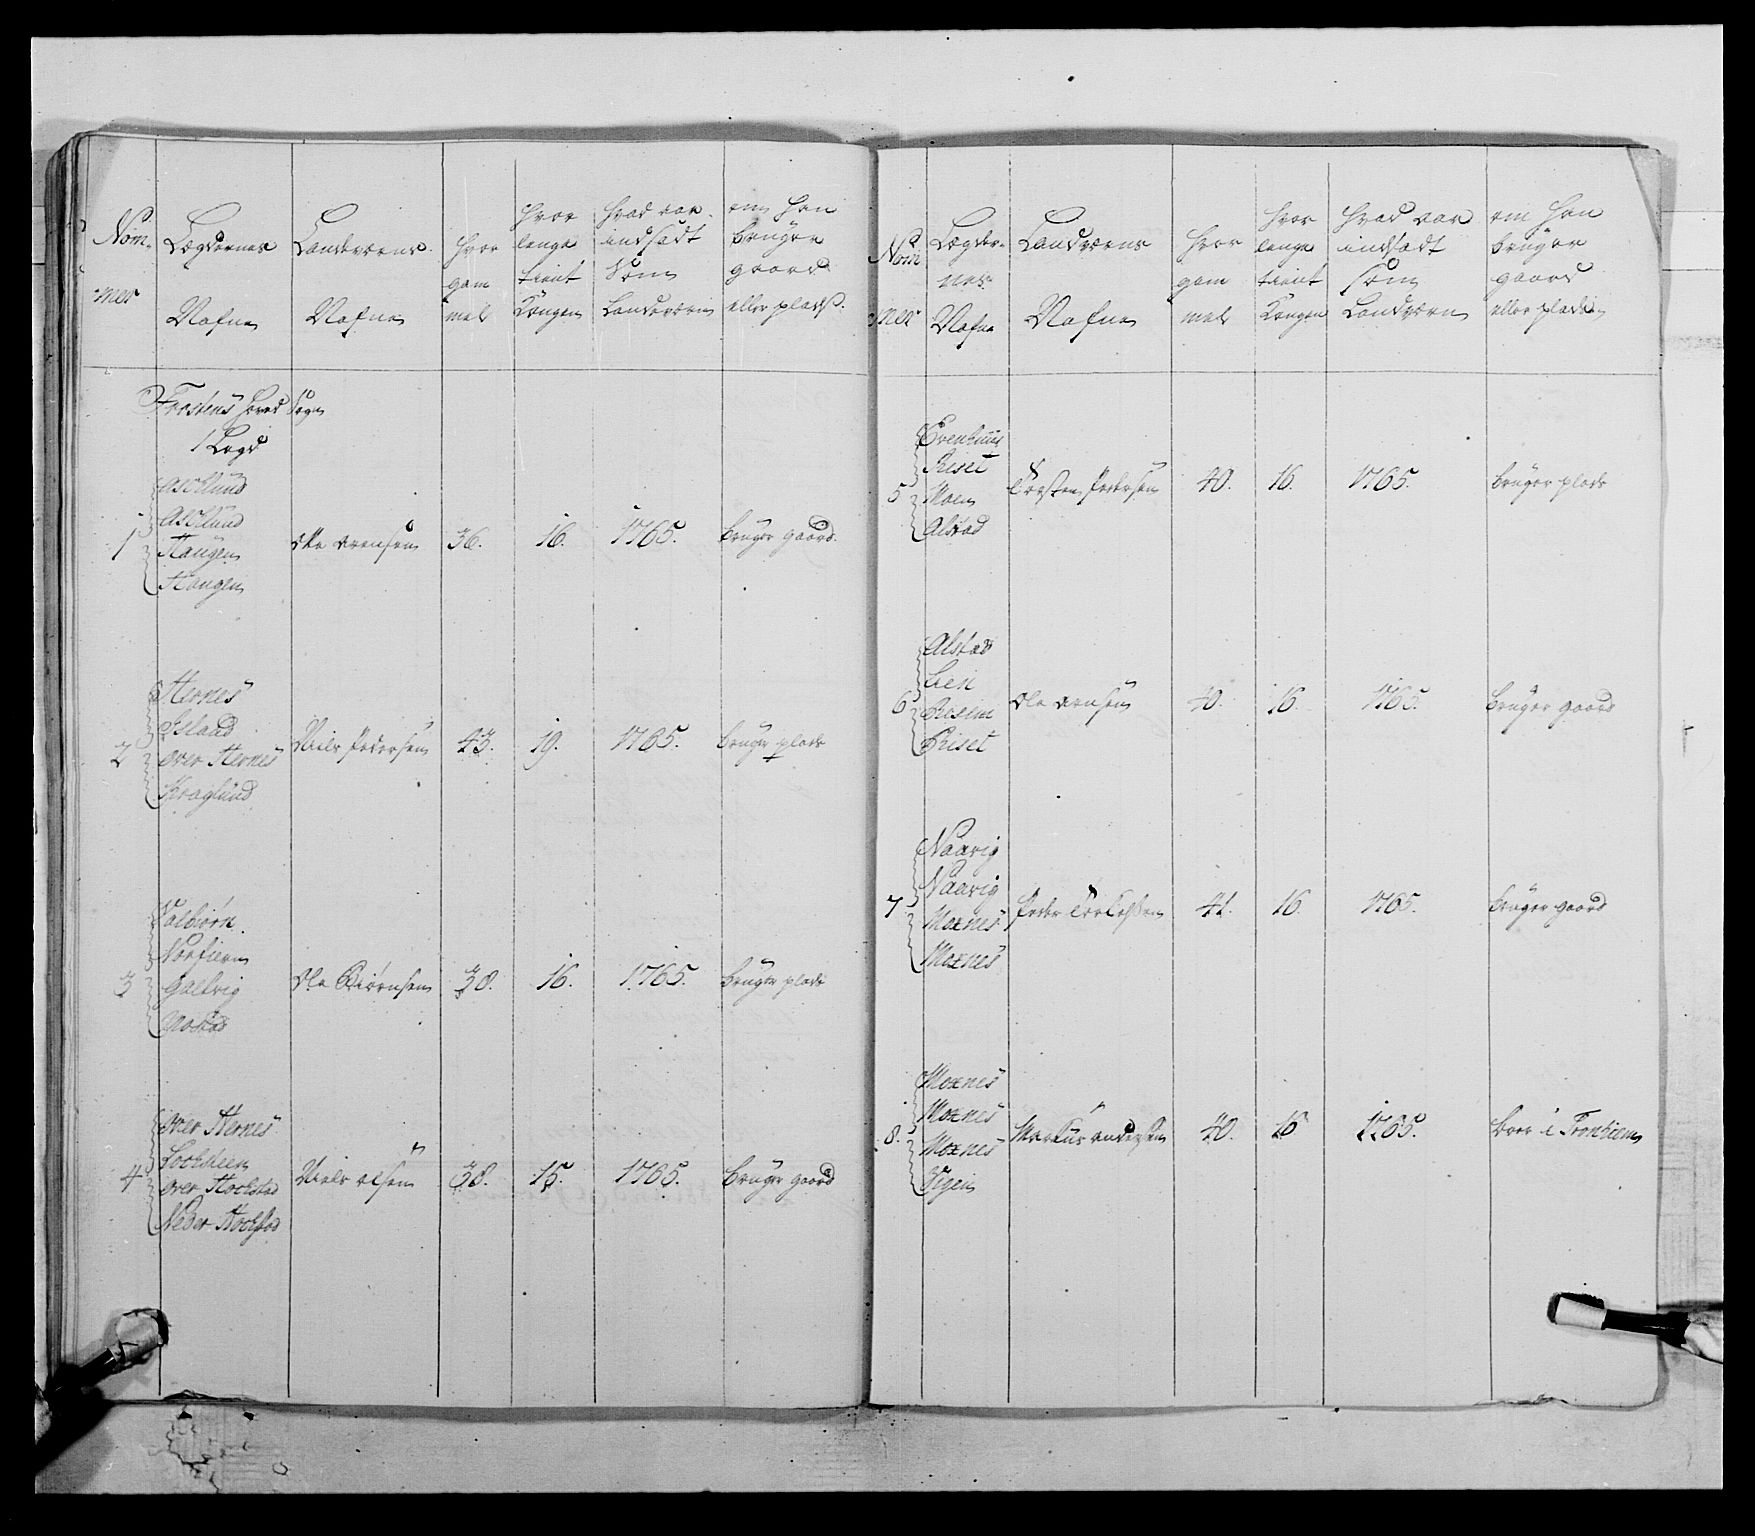 Nom-
mer
Lægdernes
Nafne
Landværns
Nafne
hvor
gam
mel
hvor
lenge
tient
Kongen
hvad aar
indsadt
som
Landværn
om han
bruger
gaard
eller plads
Frostens hoved Sogn
1 Legd
1
Aschlund
Aschlund
Haugen
Haugen
Ole Arensen
36.
16.
1765.
bruger gaard.
2
Hernes
Island
over Hernes
Kraglund
Niels Pedersen
43.
19.
1765.
bruger plads
3
Valbiørn
Galtvig
Ole Biørnsen
38.
16.
1765.
bruger plads
4
over Hernes
Lochsteen
over Hochstad
Neder Hochstad
Niels olsen
38.
15.
1765.
bruger gaard
Nom
mer
Lægder-
nes
Nafne
Landværns
Nafne
hvor
gam
mel
hvor
lenge
tient
Kongen
hvad aar
indsadt
som
Landværn
om han
bruger
gaard
eller pladsen
5
Evenhuus
Riset
Moen
Alstad
Torsten Pedersen
40.
16.
1765.
bruger plads
6
Alstad
Lien
Risem
Riset
Ole Arensen
40.
16.
1765.
bruger gaard
7
Naavig
Naavig
Moxnes
Moxnes
Peder Torkelsen
41.
16.
1765.
bruger gaard
8.
Moxnes
Moxnes
Moxnes
Vigen
Markus andersen
40.
16
1765.
boer i Tronhiem